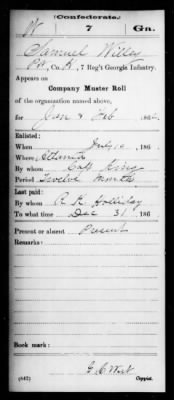 (Confederate.)
W 7 Ga.
Samuel Willey
Pvt, Co. K, 7 Reg't Georgia Infantry.
Appears on
Company Muster Roll
of the organization named above,
for Jan & Feb 186
Enlisted:
When July 10, 186
Where Atlanta
By whom Capt King
Period Twelve Months
Last paid:
By whom R. K. Holliday
To what time Dec 31, 186
Present or absent Present
Remarks:
Book mark:
(642) Copyist.